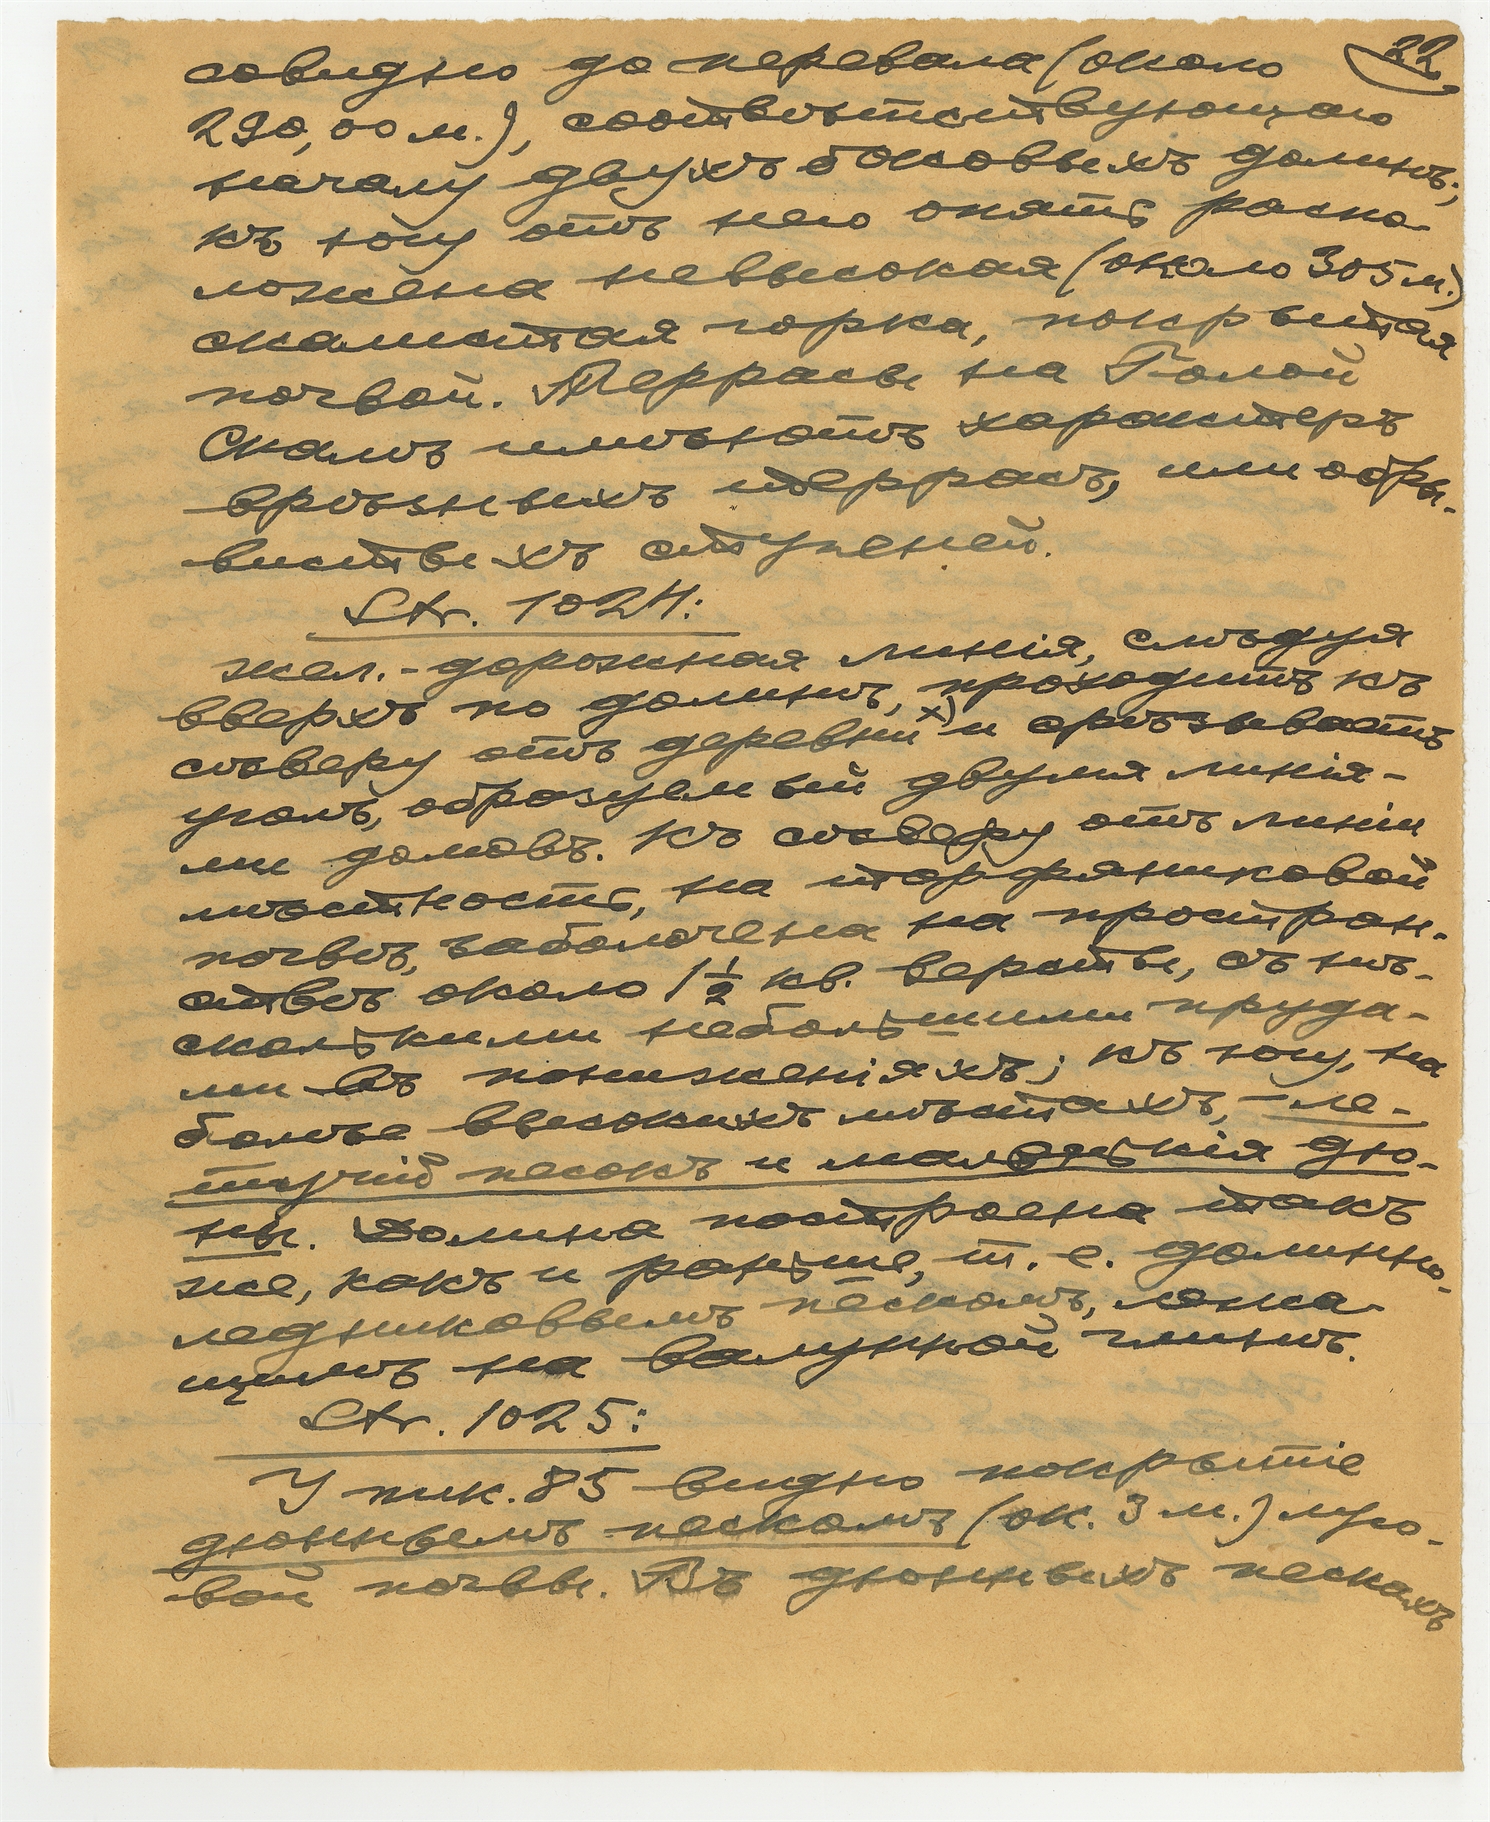 22
совидно до перевала (около
290,00 м.), соотвѣтствующаго
началу двухъ боковыхъ долинъ;
къ югу отъ него опять распо-
ложена невысокая (около 305 м.)
скалистая горка, покрытая
почвой. Террасы на Голой
Скалѣ имѣютъ характеръ
врѣзныхъ террасъ, или обры-
вистыхъ ступеней.
Str. 1024:
жел.-дорожная линія, слѣдуя
вверхъ по долинѣ, проходитъ къ
сѣверу отъ деревни x) и срѣзываетъ
уголъ, образуемый двумя линія-
ми домовъ. Къ сѣверу отъ линіи
мѣстность, на торфяниковой
почвѣ, заболочена на простран-
ствѣ около 1 1/2 кв. версты, съ нѣ-
сколькими небольшими пруда-
ми въ пониженіяхъ; къ югу, на
болѣе высокихъ мѣстахъ, – ле-
тучій песокъ и маленькія дю-
ны. Долина построена такъ
же, какъ и раньше, т. е. долинно-
ледниковымъ пескомъ, лежа-
щимъ на валунной глинѣ.
Str. 1025:
У пик. 85 видно покрытіе
дюннымъ пескомъ (ок. 3 м.) луго-
вой почвы. Въ дюнныхъ пескахъ